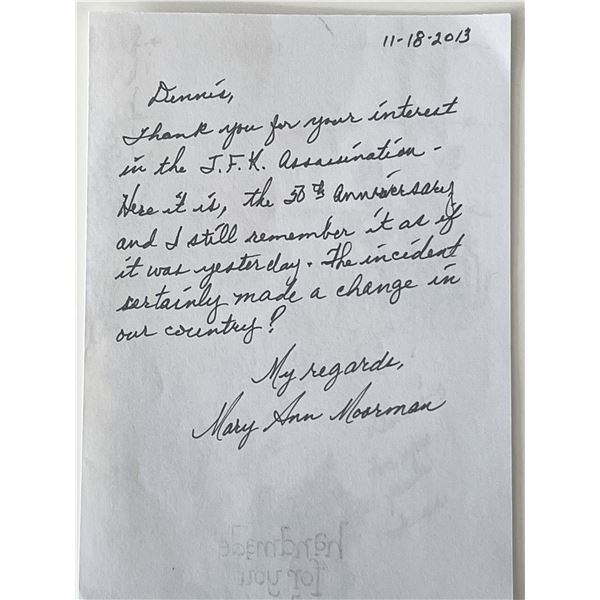 11-18-2013
Dennis,
Thank you for your interest
in the J.F.K. Assasination -
Here it is, the 50th anniversary
and I still remember it as if
it was yesterday. The incident
certainly made a change in
our country!
My regards,
Mary Ann Moorman
handmade
for you